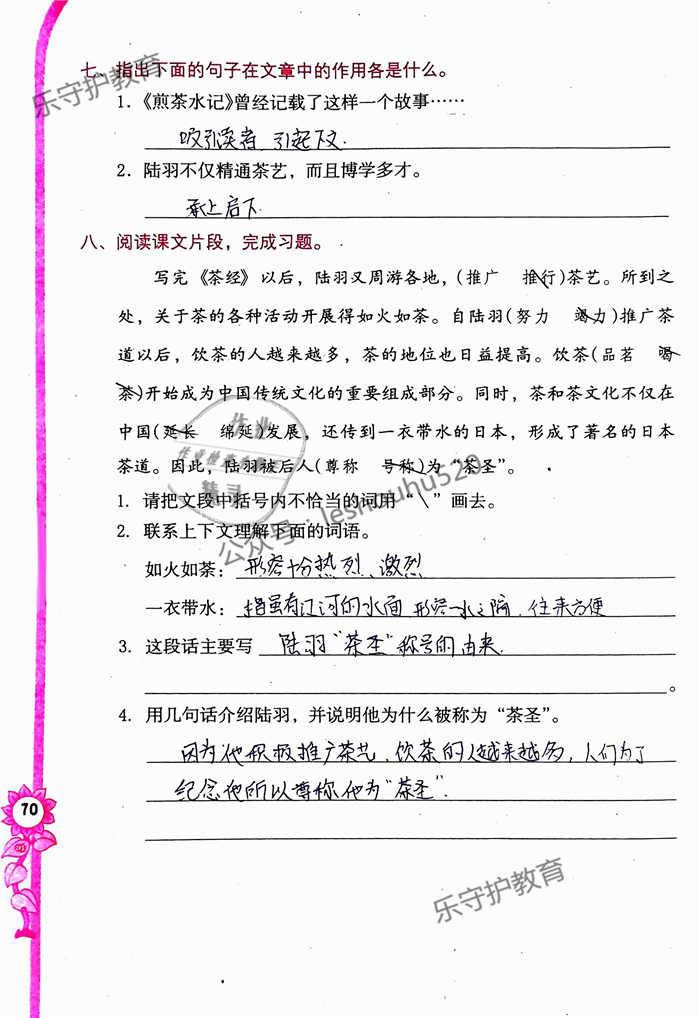 七、指出下面的句子在文章中的作用各是什么。
乐守护教育
1.《煎茶水记》曾经记载了这样一个故事……
吸引读者 引起下文.
2. 陆羽不仅精通茶艺，而且博学多才。
承上启下
八、阅读课文片段，完成习题。
写完《茶经》以后，陆羽又周游各地，(推广 推行)茶艺。所到之
处，关于茶的各种活动开展得如火如荼。自陆羽(努力 竭力)推广茶
道以后，饮茶的人越来越多，茶的地位也日益提高。饮茶(品茗 喝
茶)开始成为中国传统文化的重要组成部分。同时，茶和茶文化不仅在
中国(延长 绵延)发展，还传到一衣带水的日本，形成了著名的日本
茶道。因此，陆羽被后人(尊称 号称)为“茶圣”。
作业
作业检查小帮手
精灵
公众号：leshouhu520
1. 请把文段中括号内不恰当的词用“\”画去。
2. 联系上下文理解下面的词语。
如火如荼：形容十分热烈、激烈
一衣带水：指虽有江河的水面 形容一水之隔，往来方便
3. 这段话主要写 陆羽“茶圣”称号的由来.
。
4. 用几句话介绍陆羽，并说明他为什么被称为“茶圣”。
因为他积极推广茶艺，饮茶的人越来越多，人们为了
纪念他所以尊称他为“茶圣”.
70
乐守护教育